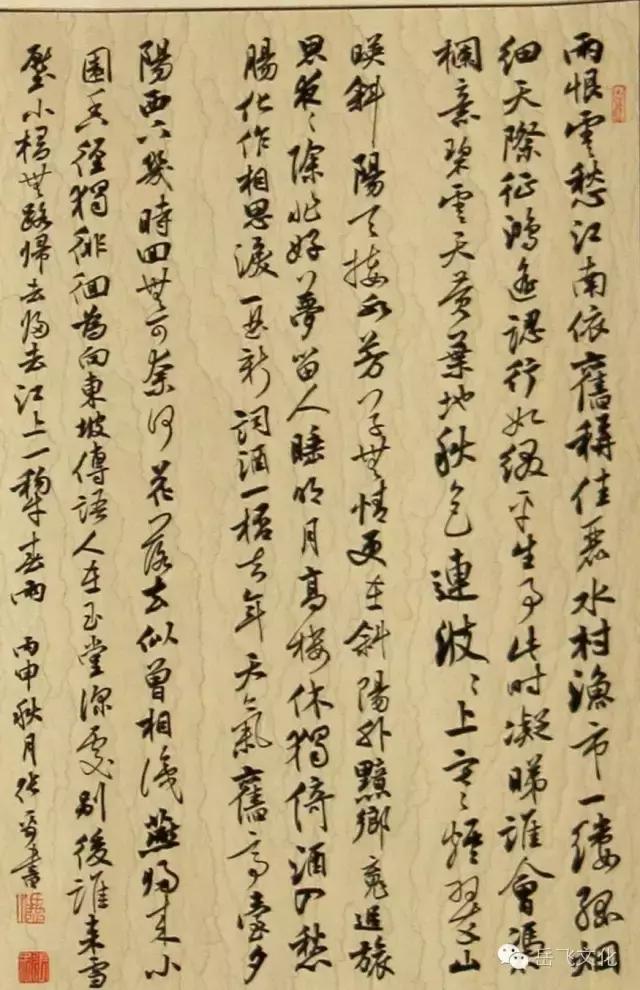 雨恨雲愁江南依舊稱佳麗水村漁市一縷孤烟
细天際征鴻遙認行如綴平生事此時凝睇誰會馮
欄意碧雲天黄葉地秋色連波〻上寒〻烟翠山
暎斜陽天接水芳草無情更在斜陽外黯鄉魂追旅
思夜〻除非好夢留人睡明月高樓休獨倚酒入愁
腸化作相思淚一曲新詞酒一桮去年天氣舊亭臺夕
陽西下幾時回無可奈何花落去似曾相識燕歸来小
園香徑獨徘徊為向東坡傳語人在玉堂深處别後誰来雪
壓小橋無路歸去歸去江上一犁春雨 丙申秋月張書
岳飞文化